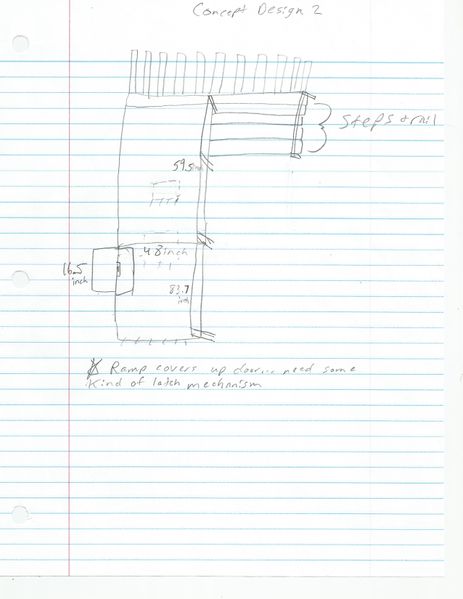 Concept Design 2
Steps & rail
59.5in
48 inch
16.5
inch
83.7
inch
* Ramp covers up door... need some
kind of latch mechanism